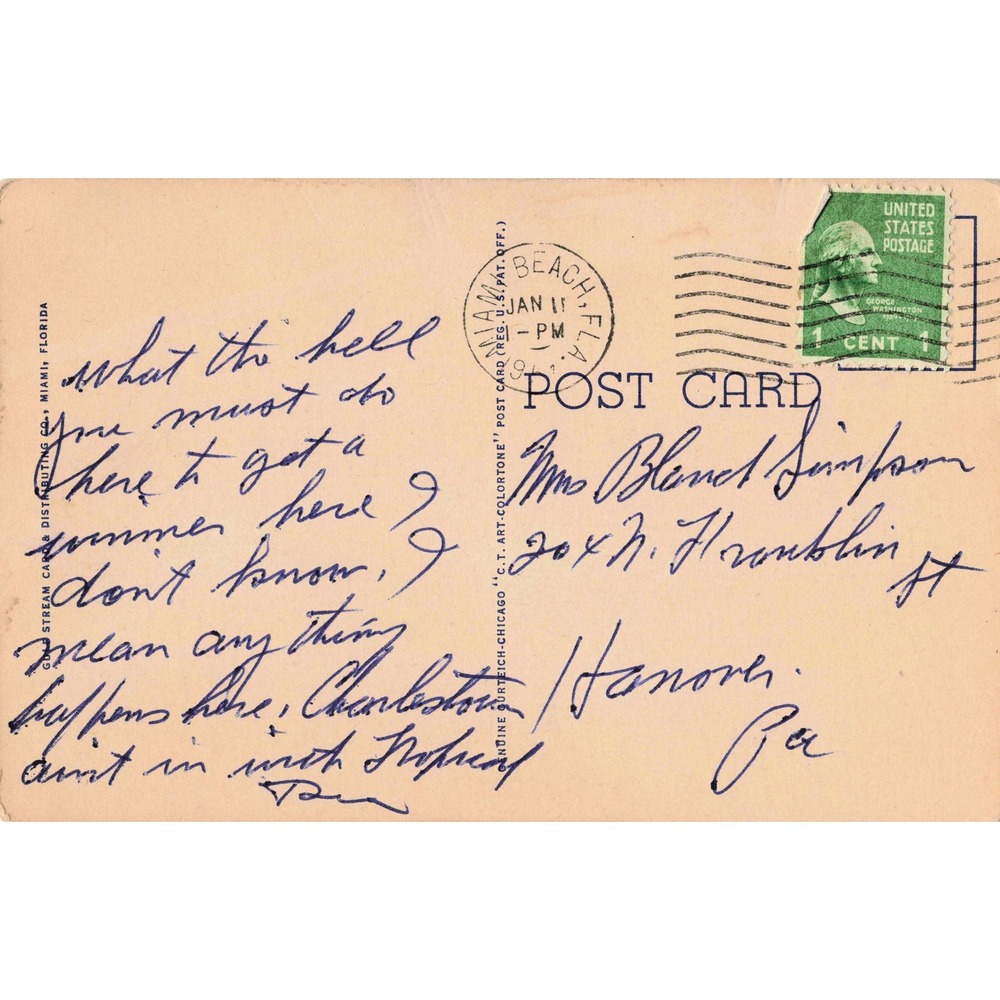 what the hell
you must do
here to get a
winner here I
don't know, I
mean anything
happens here, Charlestown
ain't in with Tropical
GULF STREAM CARD & DISTRIBUTING CO., MIAMI, FLORIDA
GENUINE CURTEICH-CHICAGO "C.T. ART-COLORTONE" POST CARD (REG. U.S. PAT. OFF.)
MIAMI BEACH, FLA.
JAN 11
1-PM
UNITED
STATES
POSTAGE
GEORGE
WASHINGTON
1 CENT 1
POST CARD
Mrs Bland Simpson
204 N. Franklin
St
Hanover.
Pa